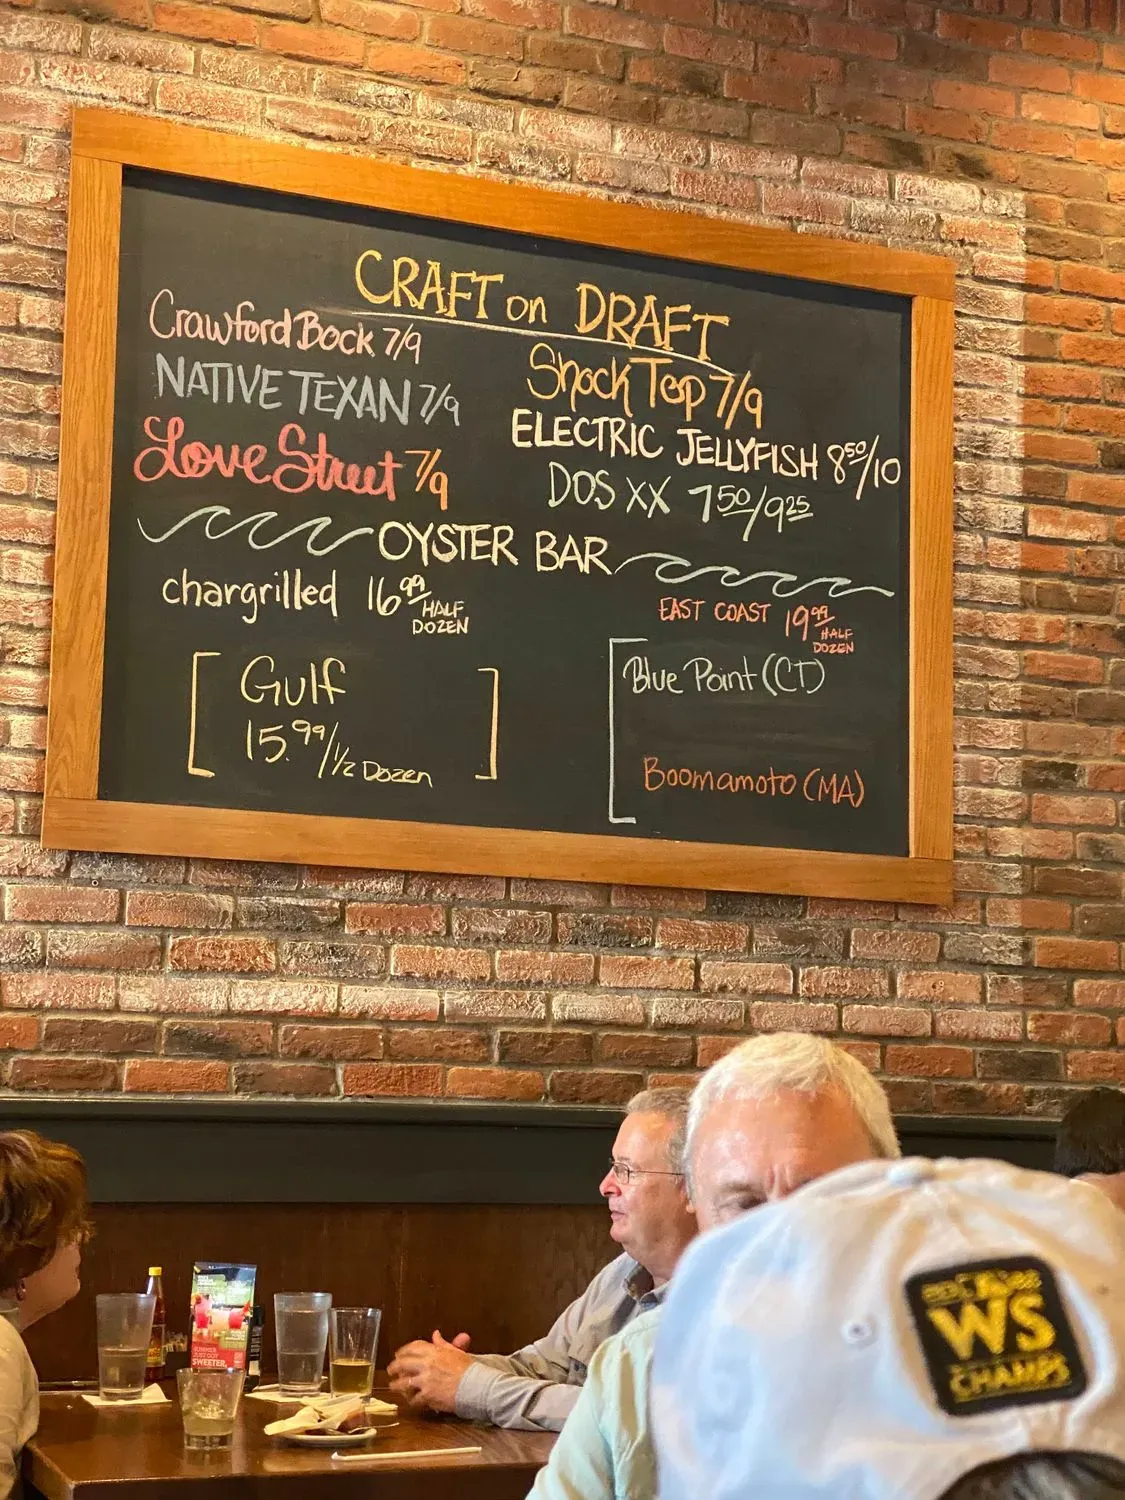 CRAFT on DRAFT
Crawford Bock 7/9
NATIVE TEXAN 7/9
Love Street 7/9
Shock Top 7/9
ELECTRIC JELLYFISH 8 50/10
DOS XX 7 50/9 25
OYSTER BAR
chargrilled 16 99
HALF
DOZEN
Gulf
15.99/1/2 Dozen
EAST COAST 19 99
HALF
DOZEN
Blue Point (CT)
Boomamoto (MA)
SUMMER
JUST GOT
SWEETER.
WS
CHAMPS